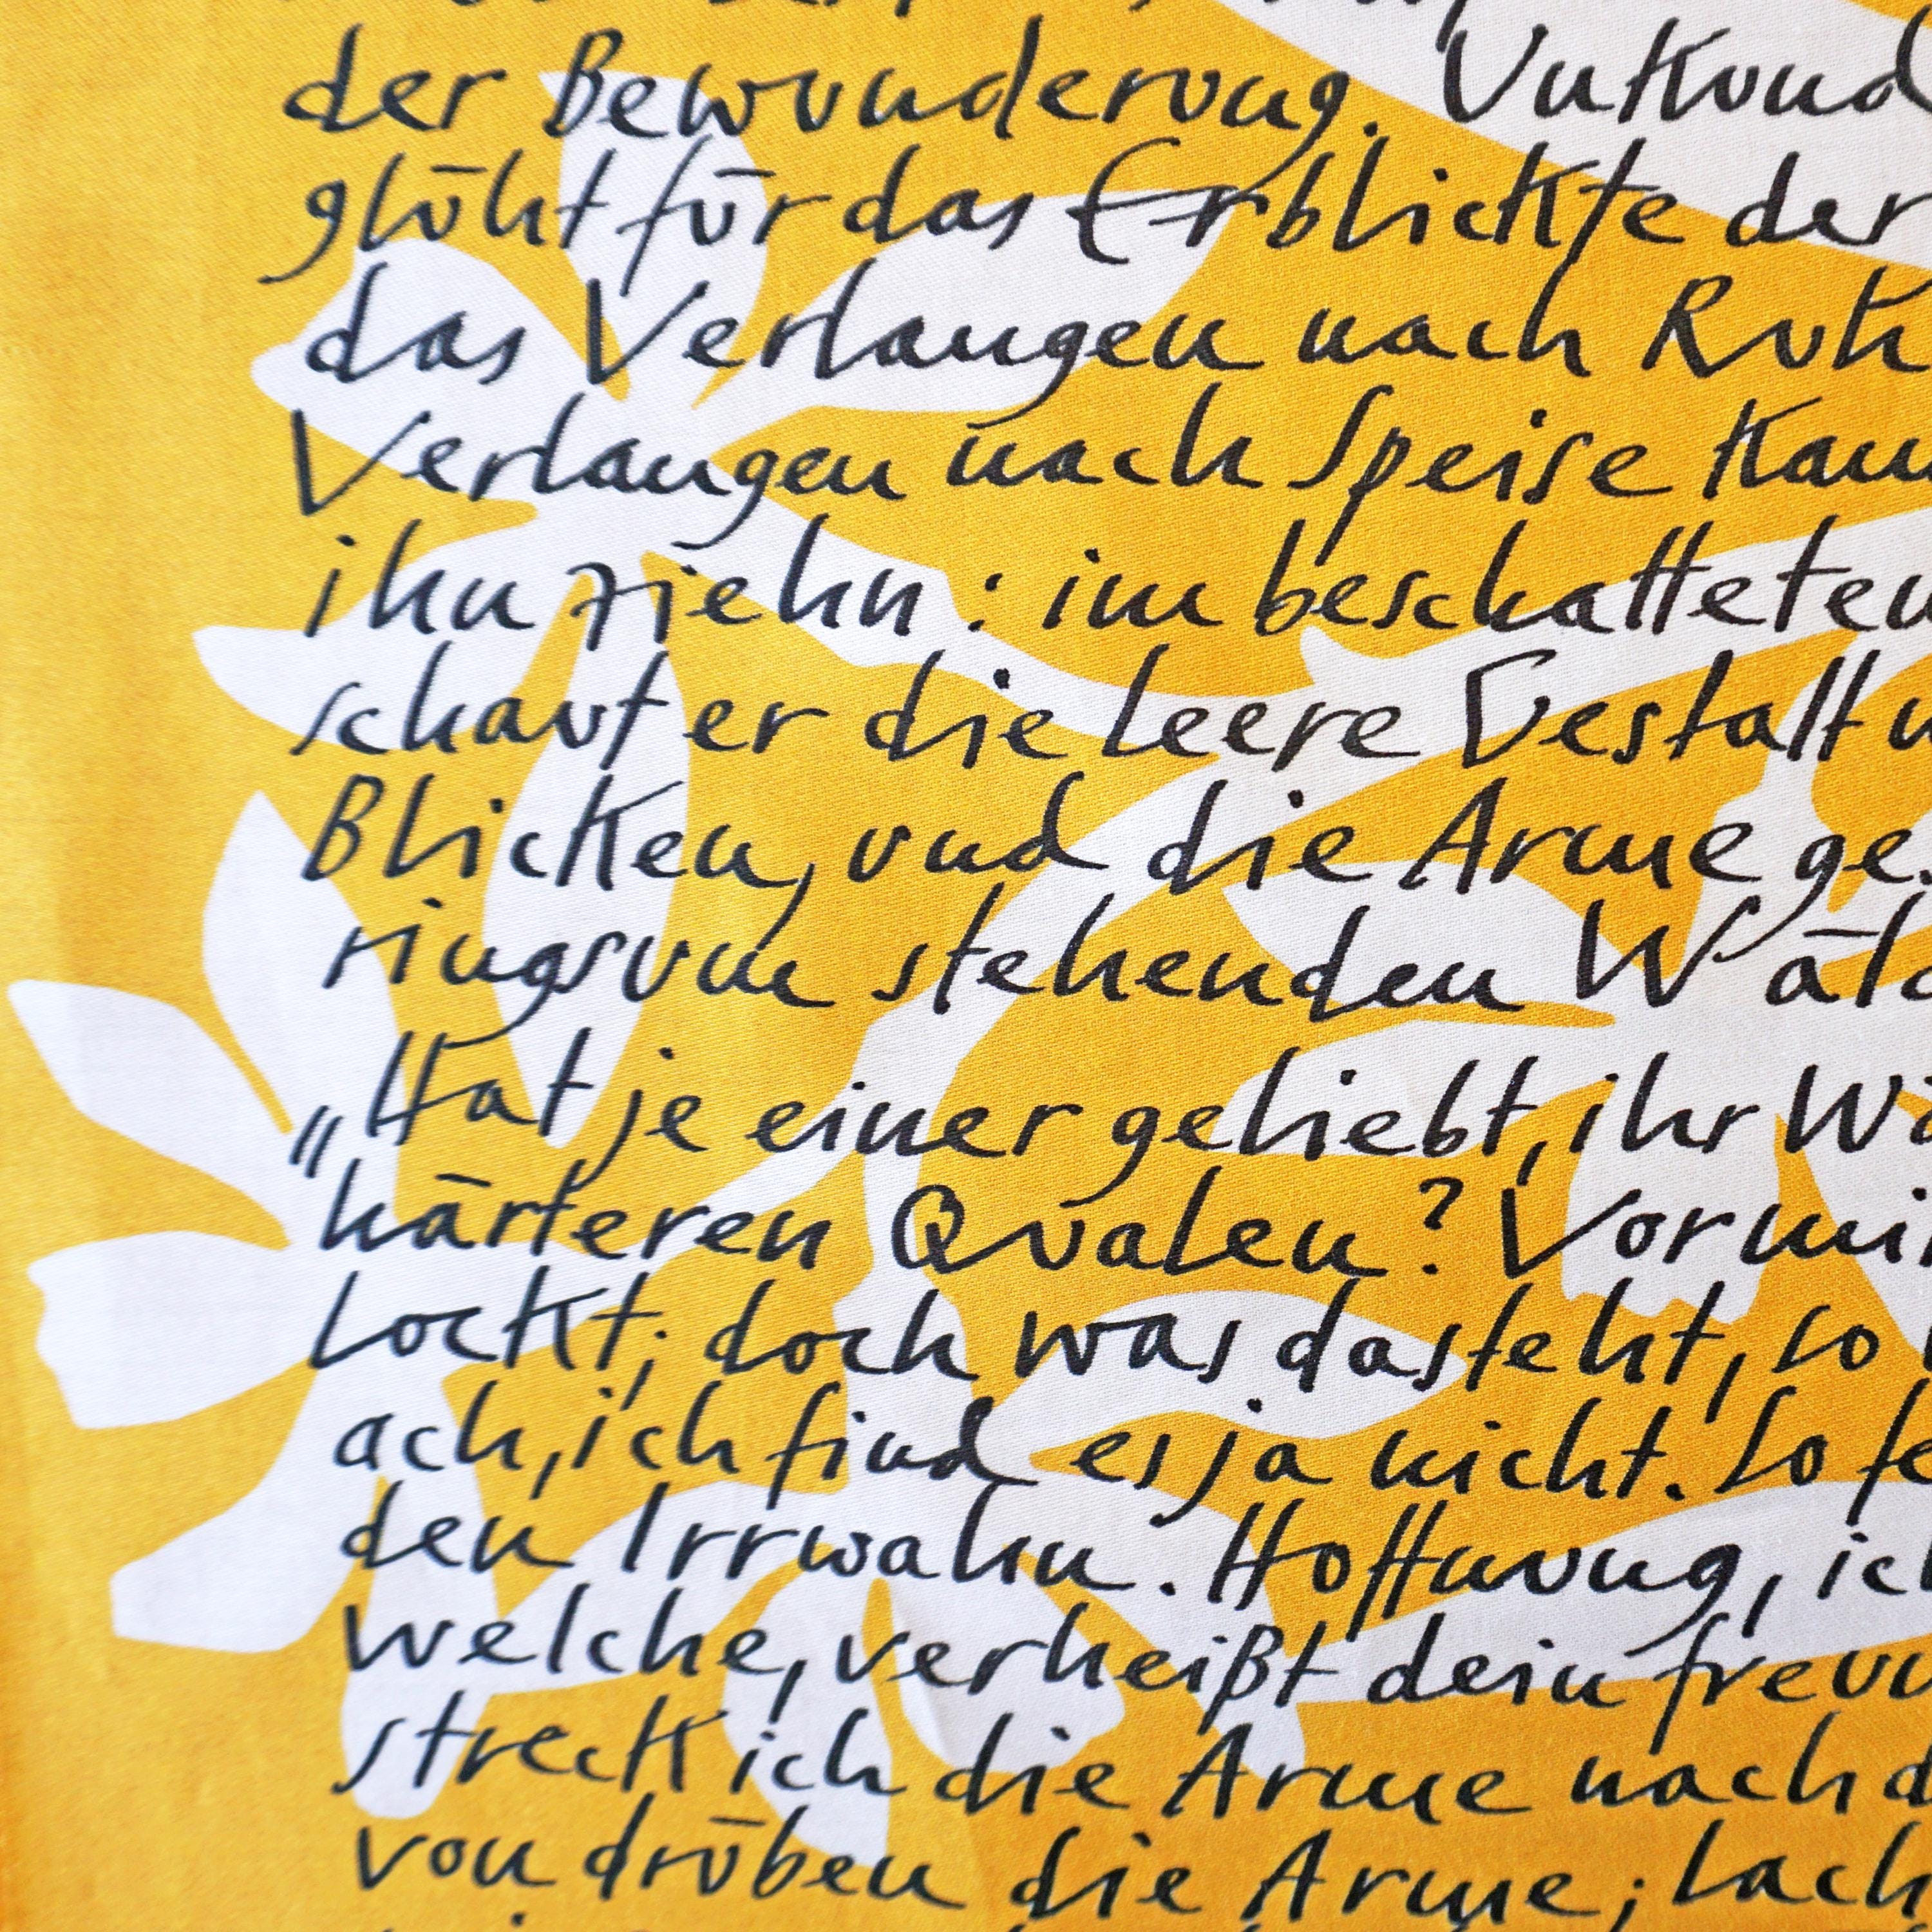 der Bewunderung. Unkund
glüht für das Erblickte der
das Verlangen nach Ruh
Verlangen nach Speise kan
ihn ziehn: im beschatteten
schaut er die leere Gestalt
Blicken, und die Arme ge
ringsum stehenden Wäld
„Hat je einer geliebt, ihr Wä
härteren Qualen? Vormir
lockt; doch was dasteht, so
ach, ich find es ja nicht. So fe
den Irrwahn. Hoffnung, ich
welche, verheißt dein freun
streck ich die Arme nach d
von drüben die Arme; lach